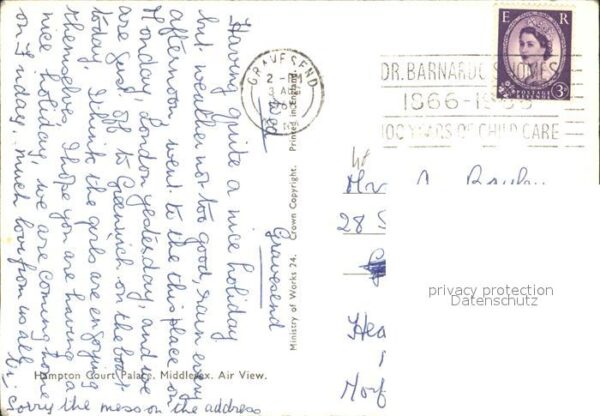 Wed
Gravesend
Having quite a nice holiday
but weather not too good, rain every
afternoon, went to this place on
Monday, London yesterday, and we
are just off to Greenwich on the boat
today. I think the girls are enjoying
themselves. I hope you are having a
nice holiday, we are coming home
on Friday. much love from us all
Sorry the mess on the address
Hampton Court Palace, Middlesex. Air View.
Ministry of Works 24. Crown Copyright. Printed in England
GRAVESEND
2 -
3 A
E R
POSTAGE REVENUE
3D
DR. BARNARDO'S HOMES
1866-1966
100 YEARS OF CHILD CARE
Mrs
28 S
Hea
Norf
privacy protection
Datenschutz